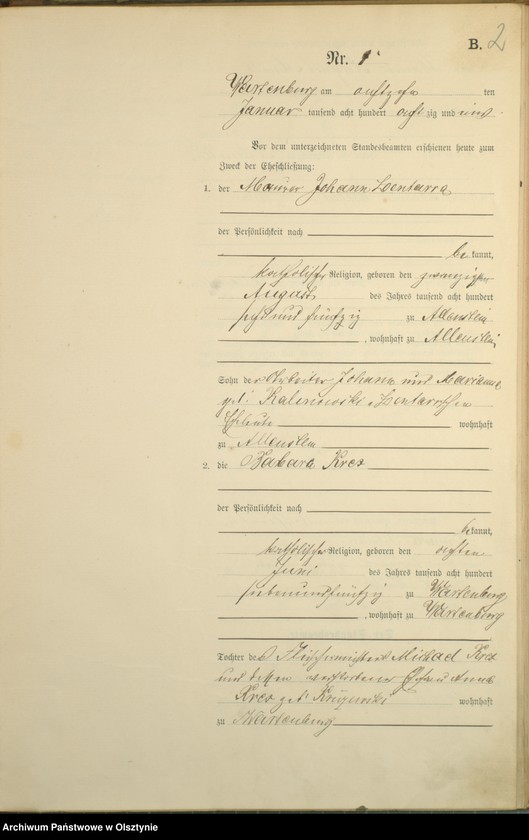 B. 2
Nr. 1
Wartenburg am achtzehn ten
Januar tausend acht hundert acht zig und eins.
Vor dem unterzeichneten Standesbeamten erschienen heute zum
Zweck der Eheschließung:
1. der Maurer Johann Lentarra
der Persönlichkeit nach
be kannt,
katholischer Religion, geboren den zwanzigsten
August des Jahres tausend acht hundert
sechs und fünfzig zu Allenstein
, wohnhaft zu Allenstein,
Sohn der Arbeiter Johann und Marianna
geb. Kalinowski Eheleute wohnhaft
zu Allenstein
2. die Barbara Krex
der Persönlichkeit nach
be kannt,
katholischer Religion, geboren den achten
Juni des Jahres tausend acht hundert
siebenundfünfzig zu Wartenburg
, wohnhaft zu Wartenburg
Tochter des Fleischermeisters Michael Krex
und dessen verstorbener Ehefrau Anna
Krex geb. wohnhaft
zu Wartenburg
Archiwum Państwowe w Olsztynie